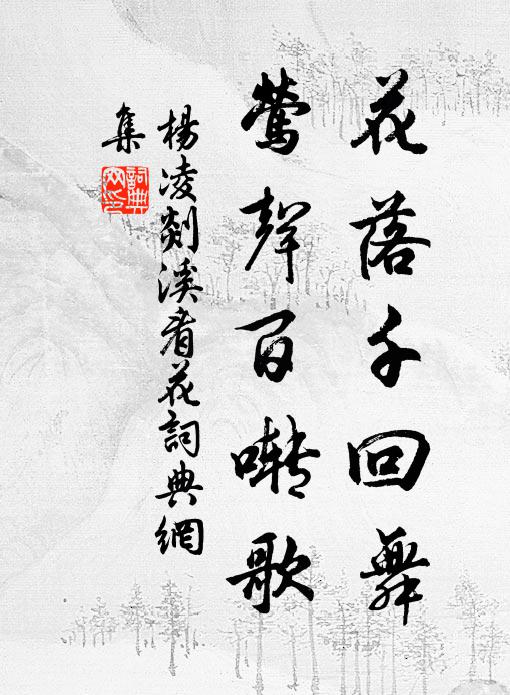 花落千回舞
鶯聲百囀歌
楊凌剡溪看花詞典網
集
詞典
网印